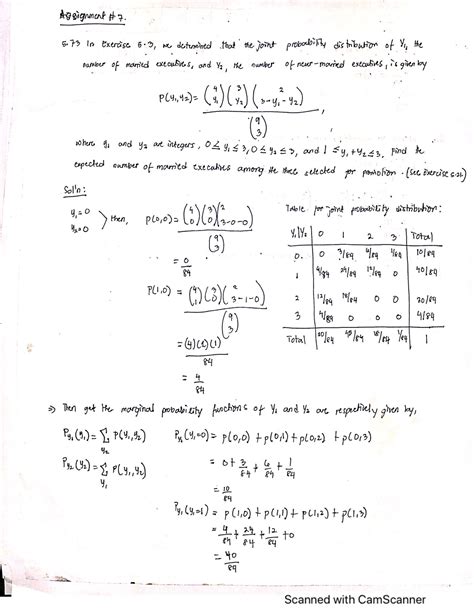 Assignment #7.
5.73 In Exercise 5.3, we determined that the joint probability distribution of Y₁, the
number of married executives, and Y₂, the number of never-married executives, is given by
P(y₁,y₂) = (4 y₁)(3 y₂)(2 3-y₁-y₂) / (9 3),
where y₁ and y₂ are integers, 0 ≤ y₁ ≤ 3, 0 ≤ y₂ ≤ 3, and 1 ≤ y₁+y₂ ≤ 3. Find the
expected number of married executives among the three selected for promotion. (See Exercise
Sol'n:
y₁=0
y₂=0 } then, P(0,0) = (4 0)(3 0)(2 3-0-0) / (9 3)
= 0/84
P(1,0) = (4 1)(3 0)(2 3-1-0) / (9 3)
= (4)(1)(1) / 84
= 4/84
Table for joint probability distribution:
Y₁\Y₂ 0 1 2 3 Total
0. 0 3/84 6/84 1/84 10/84
1 4/84 24/84 12/84 0 40/84
2 12/84 18/84 0 0 30/84
3 4/84 0 0 0 4/84
Total 20/84 45/84 18/84 1/84 1
⇒ Then get the marginal probability functions of Y₁ and Y₂ are respectively given by,
Py₁(y₁) = Σ y₂ P(y₁,y₂)
Py₂(y₂) = Σ y₁ P(y₁,y₂)
Py₁(y₁=0) = p(0,0) + p(0,1) + p(0,2) + p(0,3)
= 0 + 3/84 + 6/84 + 1/84
= 10/84
Py₁(y₁=1) = p(1,0) + p(1,1) + p(1,2) + p(1,3)
= 4/84 + 24/84 + 12/84 + 0
= 40/84
Scanned with CamScanner